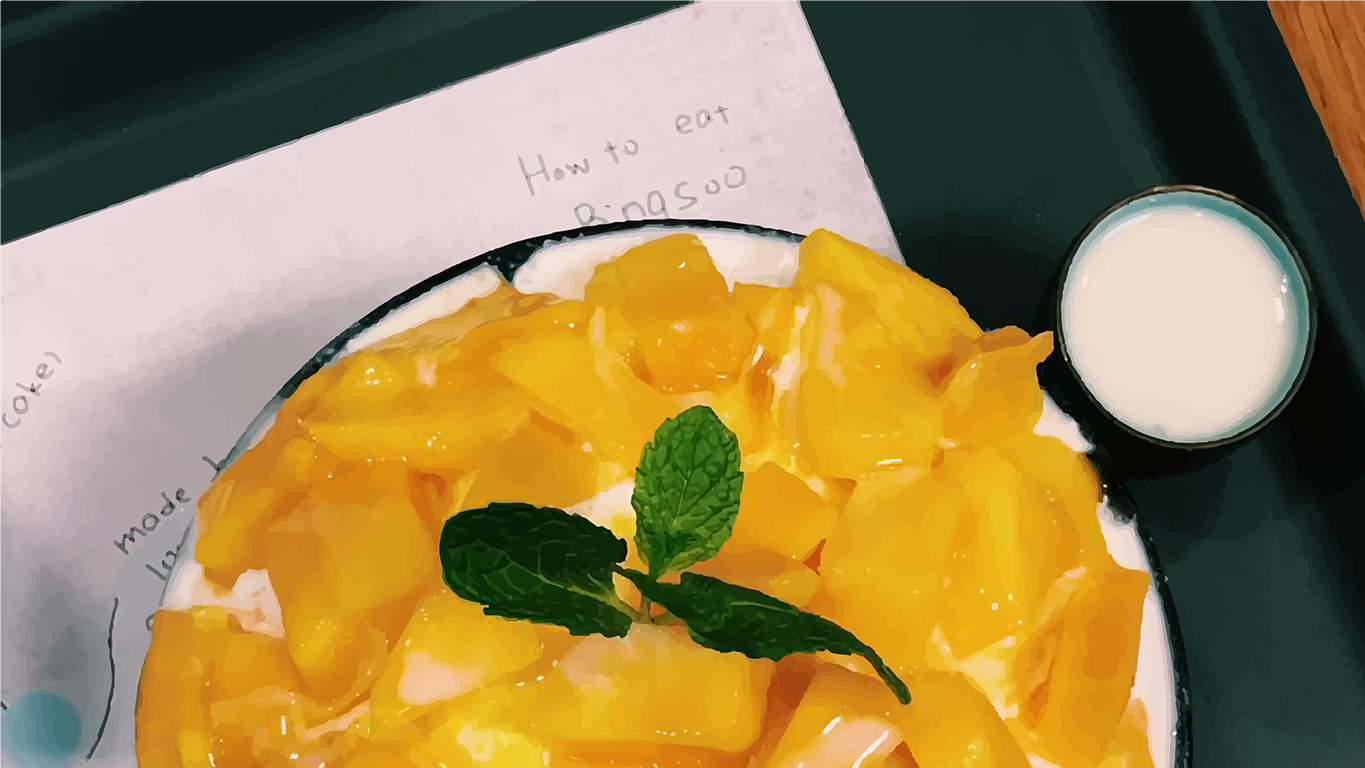 How to eat
Bingsoo
coke)
made